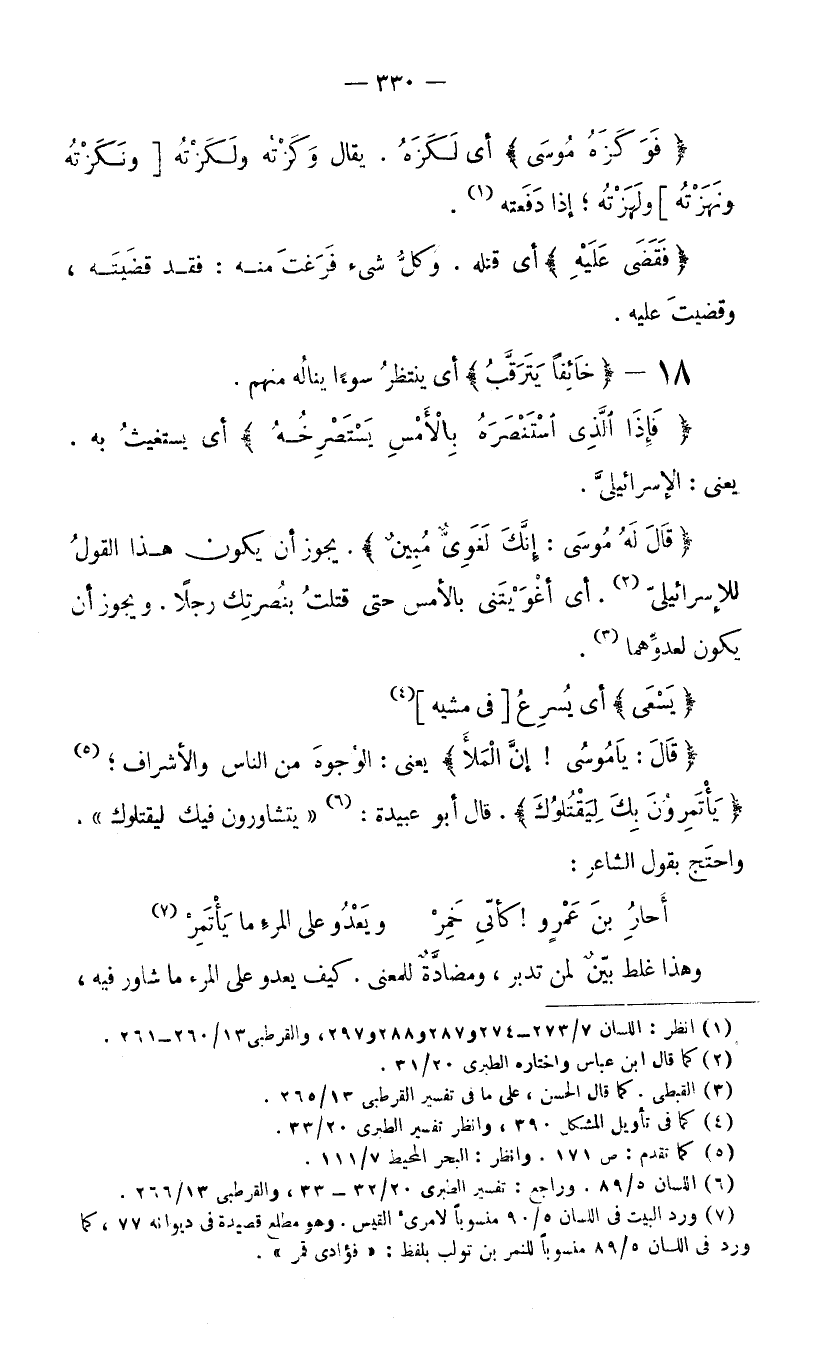 — ٣٣٠ —
﴿ فَوَكَزَهُ مُوسَى ﴾ أى لَـكَزَهُ . يقال وَكَزْتُه ولَـكَزْتُه [ ونَـكَزْتُه
ونَهَزْتُه ] ولَهَزْتُه ؛ إذا دَفَعته (١) .
﴿ فَقَضَى عَلَيْهِ ﴾ أى قتله . وكلُّ شىء فَرَغتَ منـه : فقـد قضيتَـه ،
وقضيتَ عليه .
١٨ — ﴿ خَائِفاً يَتَرَقَّبُ ﴾ أى ينتظرُ سوءًا ينالُه منهم .
﴿ فَإِذَا ٱلَّذِى ٱسْتَنْصَرَهُ بِالْأَمْسِ يَسْتَصْرِخُـهُ ﴾ أى يستغيثُ به .
يعنى : الإسرائيلىَّ .
﴿ قَالَ لَهُ مُوسَى : إِنَّكَ لَغَوِىٌّ مُبِينٌ ﴾ . يجوز أن يكون هـذا القولُ
للإسرائيلىّ (٢) . أى أغْوَيْتَنى بالأمس حتى قتلتُ بنُصرتِك رجلًا . ويجوز أن
يكون لعدوِّهما (٣) .
﴿ يَسْعَى ﴾ أى يُسرِعُ [ فى مشيه ] (٤)
﴿ قَالَ : يَامُوسُى ! إِنَّ الْمَلأَ ﴾ يعنى : الوْجوهَ من الناس والأشراف ؛ (٥)
﴿ يَأْتَمِرُونَ بِكَ لِيَقْتُلُوكَ ﴾ . قال أبو عبيدة : (٦) « يتشاورون فيك ليقتلوك » .
واحتَج بقول الشاعر :
أَحارُ بنَ عَمْرٍو ! كأنّىِ خَمِرْ ويَعْدُو على المرءِ ما يَأْتَمِرْ (٧)
وهذا غلط بيّنٌ لمن تدبر ، ومضادَّةٌ للمعنى . كيف يعدو على المرء ما شاور فيه ،
(١) انظر : اللسان ٢٧٣/٧–٢٧٤و٢٨٧و٢٨٨و٢٩٧، والقرطبى٢٦٠/١٣–٢٦١ .
(٢) كما قال ابن عباس واختاره الطبرى ٣١/٢٠ .
(٣) القبطى . كما قال الحسن ، على ما فى تفسير القرطبى ٢٦٥/١٣ .
(٤) كما فى تأويل المشكل ٣٩٠ ، وانظر تفسير الطبرى ٣٣/٢٠ .
(٥) كما تقدم : ص ١٧١ . وانظر : البحر المحيط ١١١/٧ .
(٦) اللسان ٨٩/٥ . وراجع : تفسير الطبرى ٣٢/٢٠ – ٣٣ ، والقرطبى ٢٦٦/١٣ .
(٧) ورد البيت فى اللسان ٩٠/٥ منسوباً لامرىء القيس . وهو مطلع قصيدة فى ديوانه ٧٧ ، كما
ورد فى اللسان ٨٩/٥ منسوباً للنمر بن تولب بلفظ : « فؤادى قمر » .